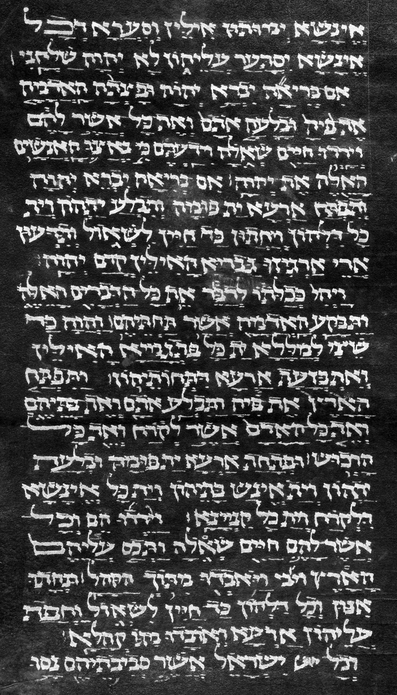 אינשא ימותון אילין וסערא דכל
אינשא יסתער עליהון לא יהוה שלחני
אם בריאה יברא יהוה ופצתה האדמה
את פיה ובלעה אתם ואת כל אשר להם
וירדו חיים שאלה וידעתם כי נאצו האנשים
האלה את יהוה אם בריאה יברא יהוה
ותפתח ארעא ית פומה ותבלע יתהון וית
כל דלהון ויחתון כד חיין לשאול ותדעון
ארי ארגיזו גבריא האילין קדם יהוה
ויהי ככלתו לדבר את כל הדברים האלה
ותבקע האדמה אשר תחתיהם והוה כד
שיצי למללא ית כל פתגמיא האילין
ואתבזעת ארעא דתחותיהון ותפתח
הארץ את פיה ותבלע אתם ואת בתיהם
ואת כל האדם אשר לקרח ואת כל
הרכוש ופתחת ארעא ית פומה ובלעת
יתהון וית אינש בתיהון וית כל אינשא
דלקרח וית כל קנינא וירדו הם וכל
אשר להם חיים שאלה ותכס עליהם
הארץ ויאבדו מתוך הקהל ונחתו
אנון וכל דלהון כד חיין לשאול וחפת
עליהון ארעא ואובדו מגו קהלא
וכל ישראל אשר סביבתיהם נסו